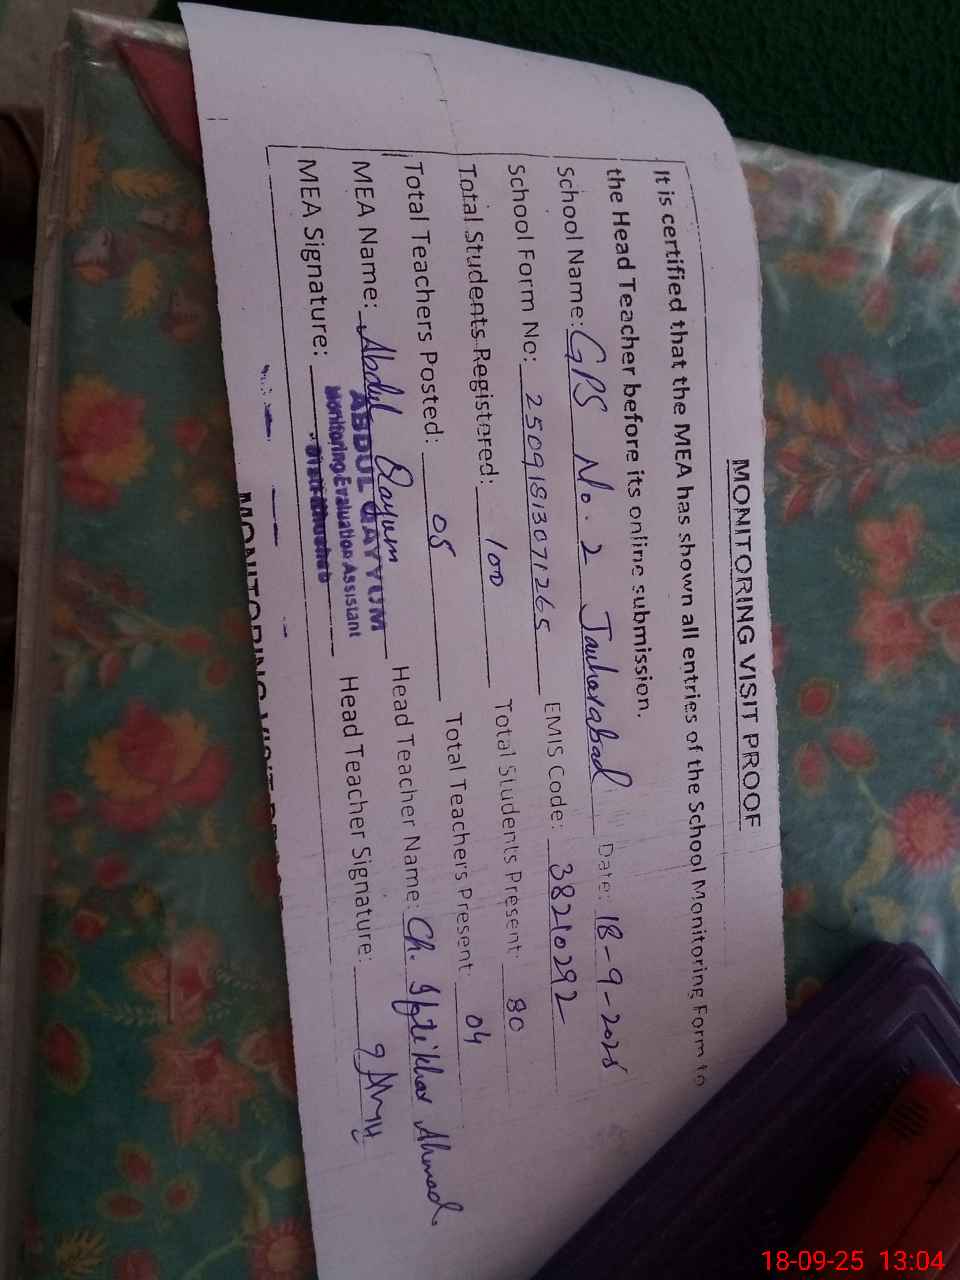 MONITORING VISIT PROOF
It is certified that the MEA has shown all entries of the School Monitoring Form to
the Head Teacher before its online submission.
School Name: GPS No. 2 Jauharabad Date: 18-9-2025
School Form No: 25091813071265 EMIS Code: 38210292
Total Students Registered: 100 Total Students Present: 80
Total Teachers Posted: 05 Total Teachers Present: 04
MEA Name: Abdul Qayum Head Teacher Name: Ch. Iftikhar Ahmad.
ABDUL QAYYUM
Monitoring Evaluation Assistant
MEA Signature: Head Teacher Signature:
MONITORING VISIT
18-09-25 13:04